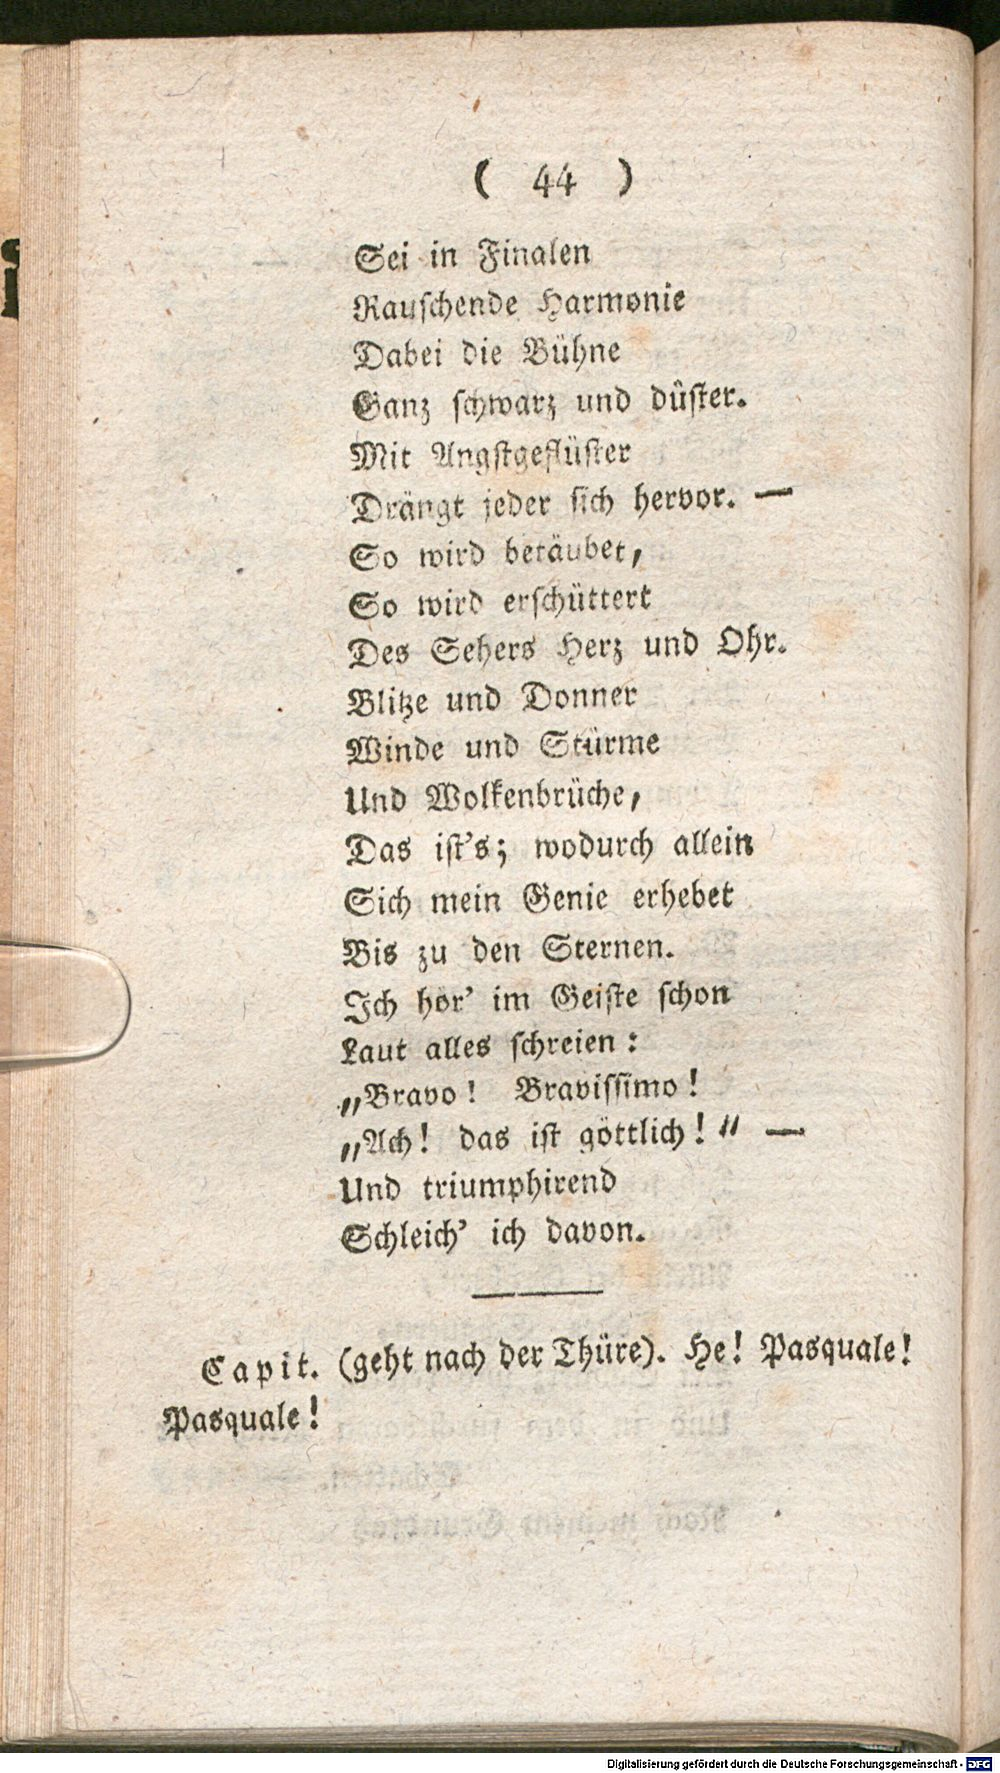 ( 44 )
Sei in Finalen
Rauschende Harmonie
Dabei die Bühne
Ganz schwarz und düster.
Mit Angstgeflüster
Drängt jeder sich hervor. —
So wird betäubet,
So wird erschüttert
Des Sehers Herz und Ohr.
Blitze und Donner
Winde und Stürme
Und Wolkenbrüche,
Das ist's; wodurch allein
Sich mein Genie erhebet
Bis zu den Sternen.
Ich hör' im Geiste schon
Laut alles schreien:
„Bravo! Bravissimo!
„Ach! das ist göttlich!“ —
Und triumphirend
Schleich' ich davon.
Capit. (geht nach der Thüre). He! Pasquale!
Pasquale!
Digitalisierung gefördert durch die Deutsche Forschungsgemeinschaft - DFG